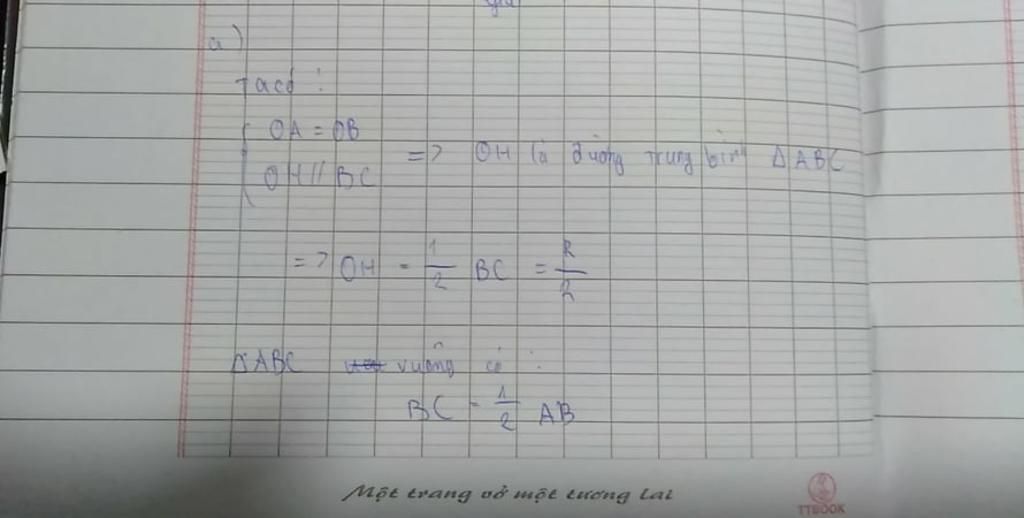 giải
a)
Ta có :
OA = OB
OH // BC
=> OH là đường trung bình ΔABC
=> OH = 1/2 BC = R/2
ΔABC vuông có :
BC = 1/2 AB
Một trang vở một tương lai
TTBOOK